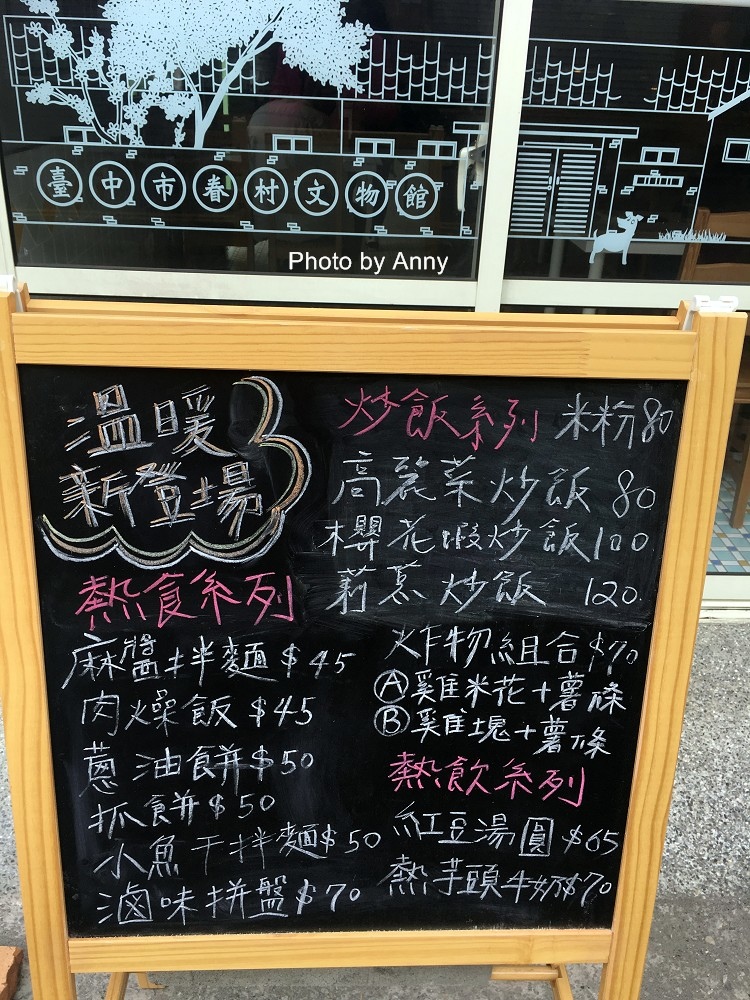 臺中市眷村文物館
Photo by Anny
溫暖
新登場
熱食系列
麻醬拌麵 $45
肉燥飯 $45
蔥油餅 $50
抓餅 $50
小魚干拌麵 $50
滷味拼盤 $70
炒飯系列 米粉 80
高麗菜炒飯 80
櫻花蝦炒飯 100
莉慕炒飯 120
炸物組合 $70
Ⓐ 雞米花+薯條
Ⓑ 雞塊+薯條
熱飲系列
紅豆湯圓 $65
熱芋頭牛奶 $70